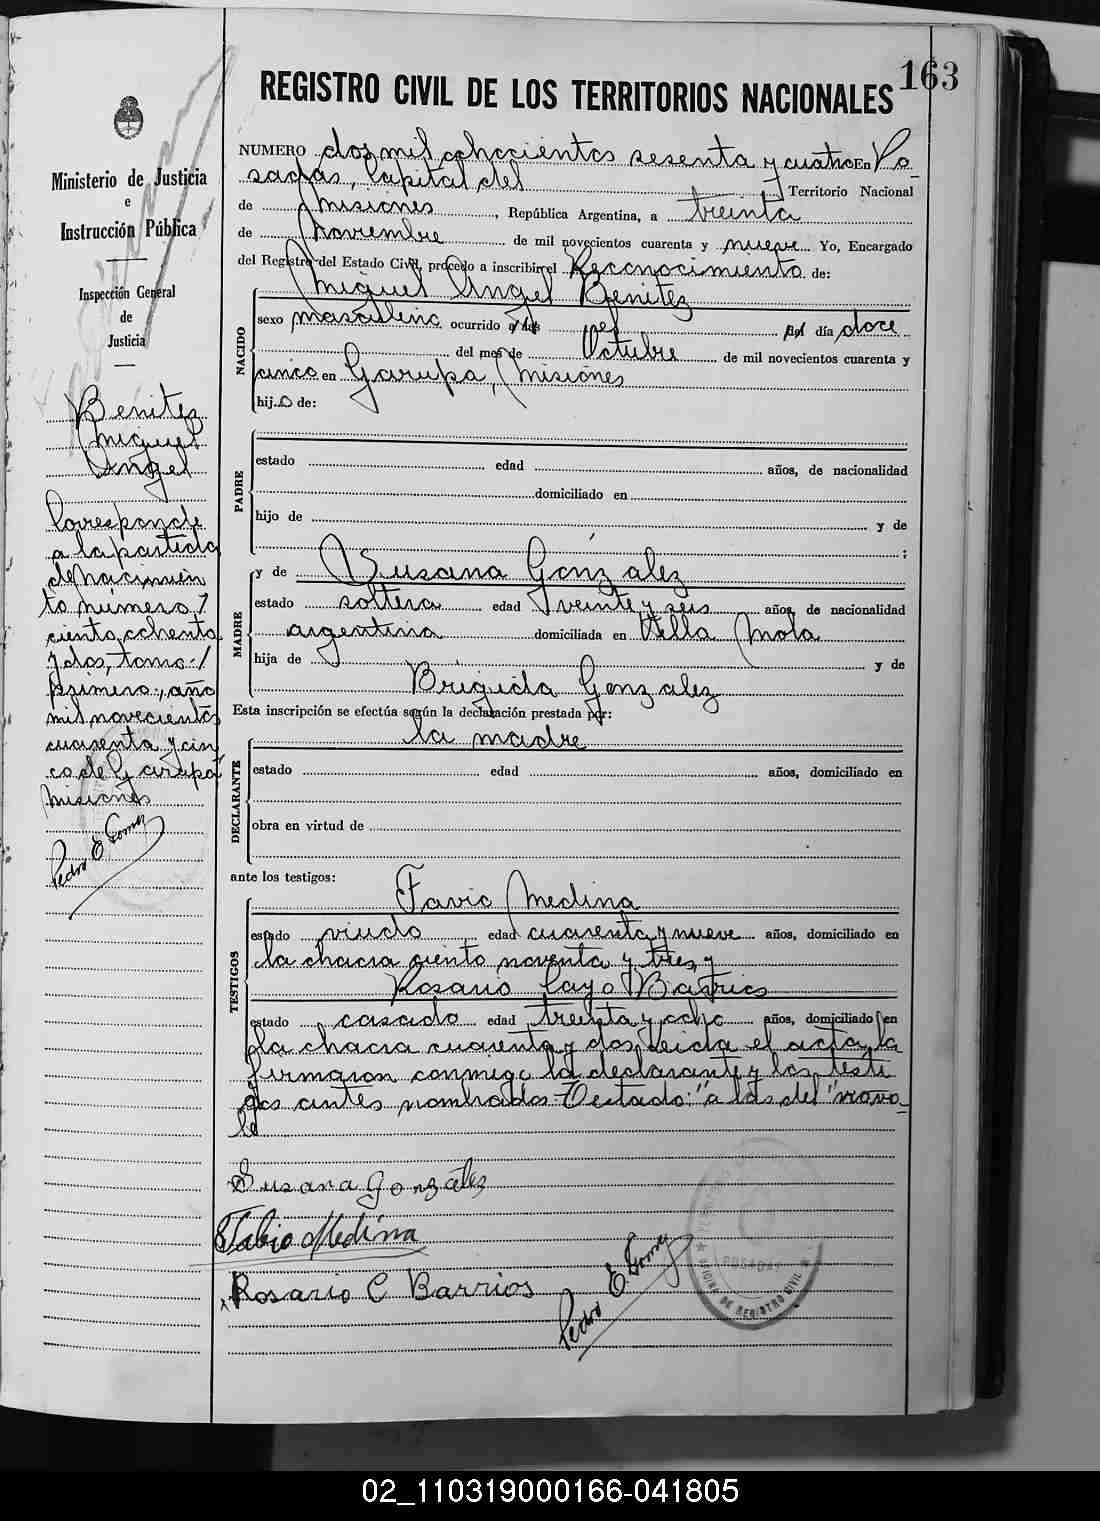 163
REGISTRO CIVIL DE LOS TERRITORIOS NACIONALES
Ministerio de Justicia
e
Instrucción Pública
Inspección General
de
Justicia
Benitez
Miguel
Angel
Corresponde
a la partida
de nacimien
to número /
ciento ochenta
y dos, tomo /
primero, año
mil novecientos
cuarenta y cin
co de Garupá
Misiones
Pedro E Gomez
NUMERO dos mil ochocientos sesenta y cuatro En Po
sadas, Capital del Territorio Nacional
de Misiones, República Argentina, a treinta
de Noviembre de mil novecientos cuarenta y nueve Yo, Encargado
del Registro del Estado Civil, procedo a inscribir el Reconocimiento de:
Miguel Angel Benitez
NACIDO
sexo masculino ocurrido a las el del día doce
del mes de Octubre de mil novecientos cuarenta y
cinco en Garupa, Misiones
hijo de:
PADRE
estado edad años, de nacionalidad
domiciliado en
hijo de y de
:
MADRE
y de Susana González
estado soltera edad veinte y seis años, de nacionalidad
argentina domiciliada en Villa Mola
hija de y de
Brigida Gonzalez
Esta inscripción se efectúa según la declaración prestada por:
la madre
DECLARANTE
estado edad años, domiciliado en
obra en virtud de
ante los testigos:
TESTIGOS
Favio Medina
estado viudo edad cuarenta y nueve años, domiciliado en
la chacra ciento noventa y tres, y
Rosario Cayo Barrios
estado casado edad treinta y ocho años, domiciliado en
la chacra cuarenta y dos, Leida el acta, la
firmaron conmigo la declarante y los testi
gos antes nombrados - Testado: "a las del" no va
le
Susana González
Fabio Medina
Rosario C Barrios
Pedro E Gomez
POSADAS
OFICINA DE REGISTRO CIVIL
02_110319000166-041805